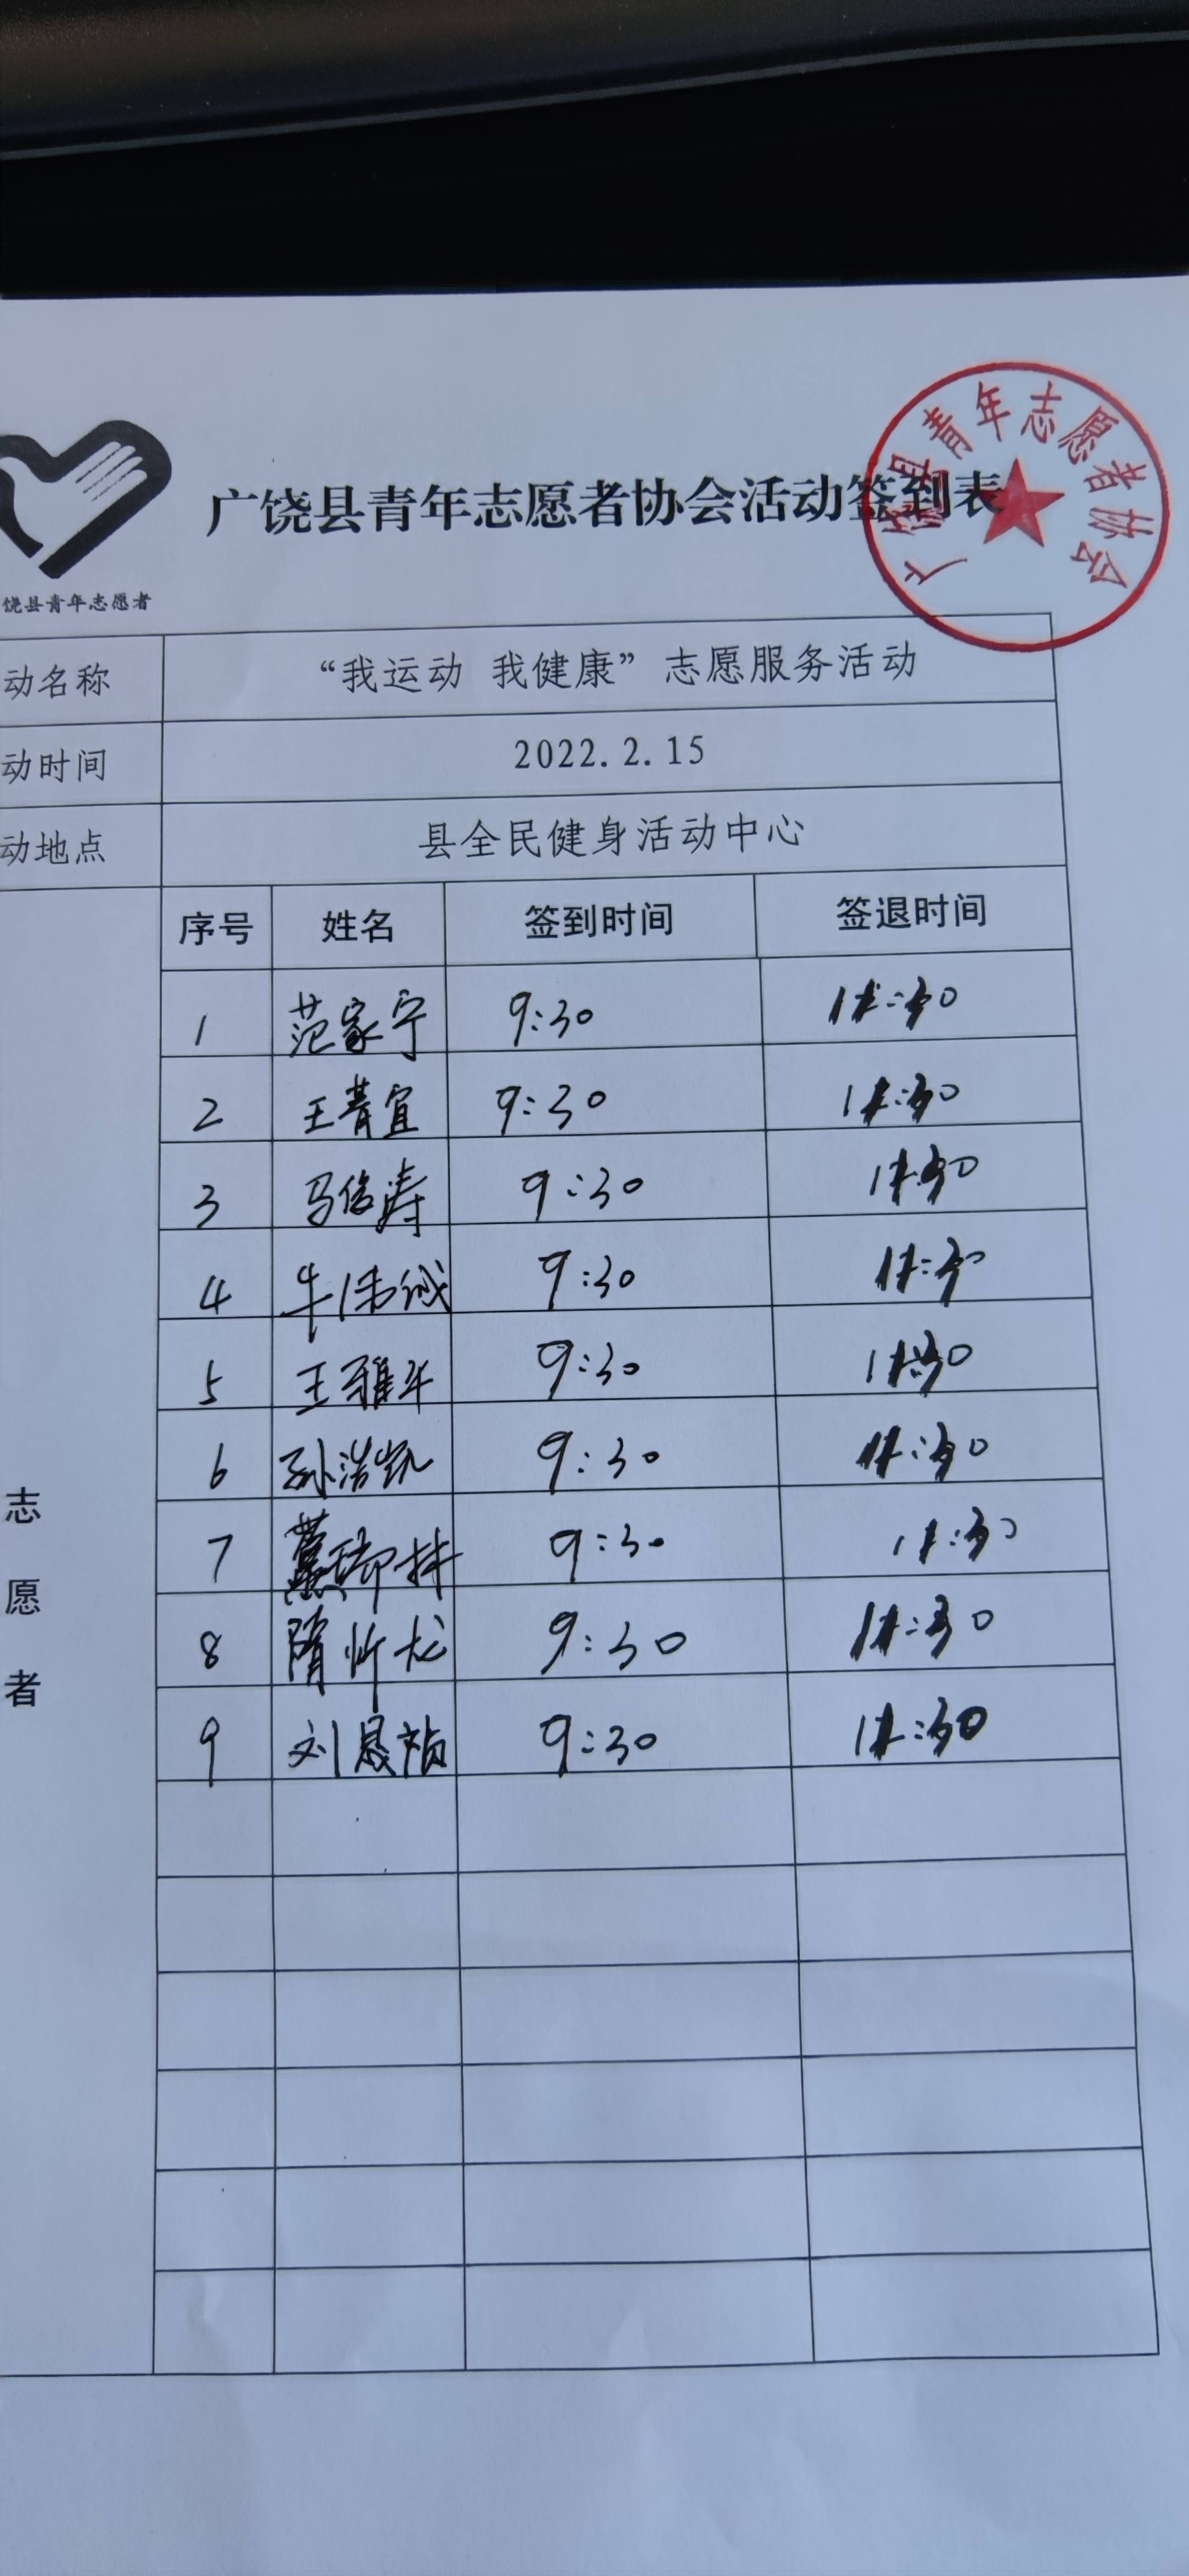 广饶县青年志愿者协会
广饶县青年志愿者协会活动签到表
饶县青年志愿者
动名称 “我运动 我健康”志愿服务活动
动时间 2022.2.15
动地点 县全民健身活动中心
序号 姓名 签到时间 签退时间
1 范家宁 9:30
2 王菁宜 9:30
3 马俊涛 9:30
4 牛浩诚 9:30
5 王雅平 9:30
6 孙浩凯 9:30
7 9:30
8 隋忻龙 9:30
9 9:30
志
愿
者